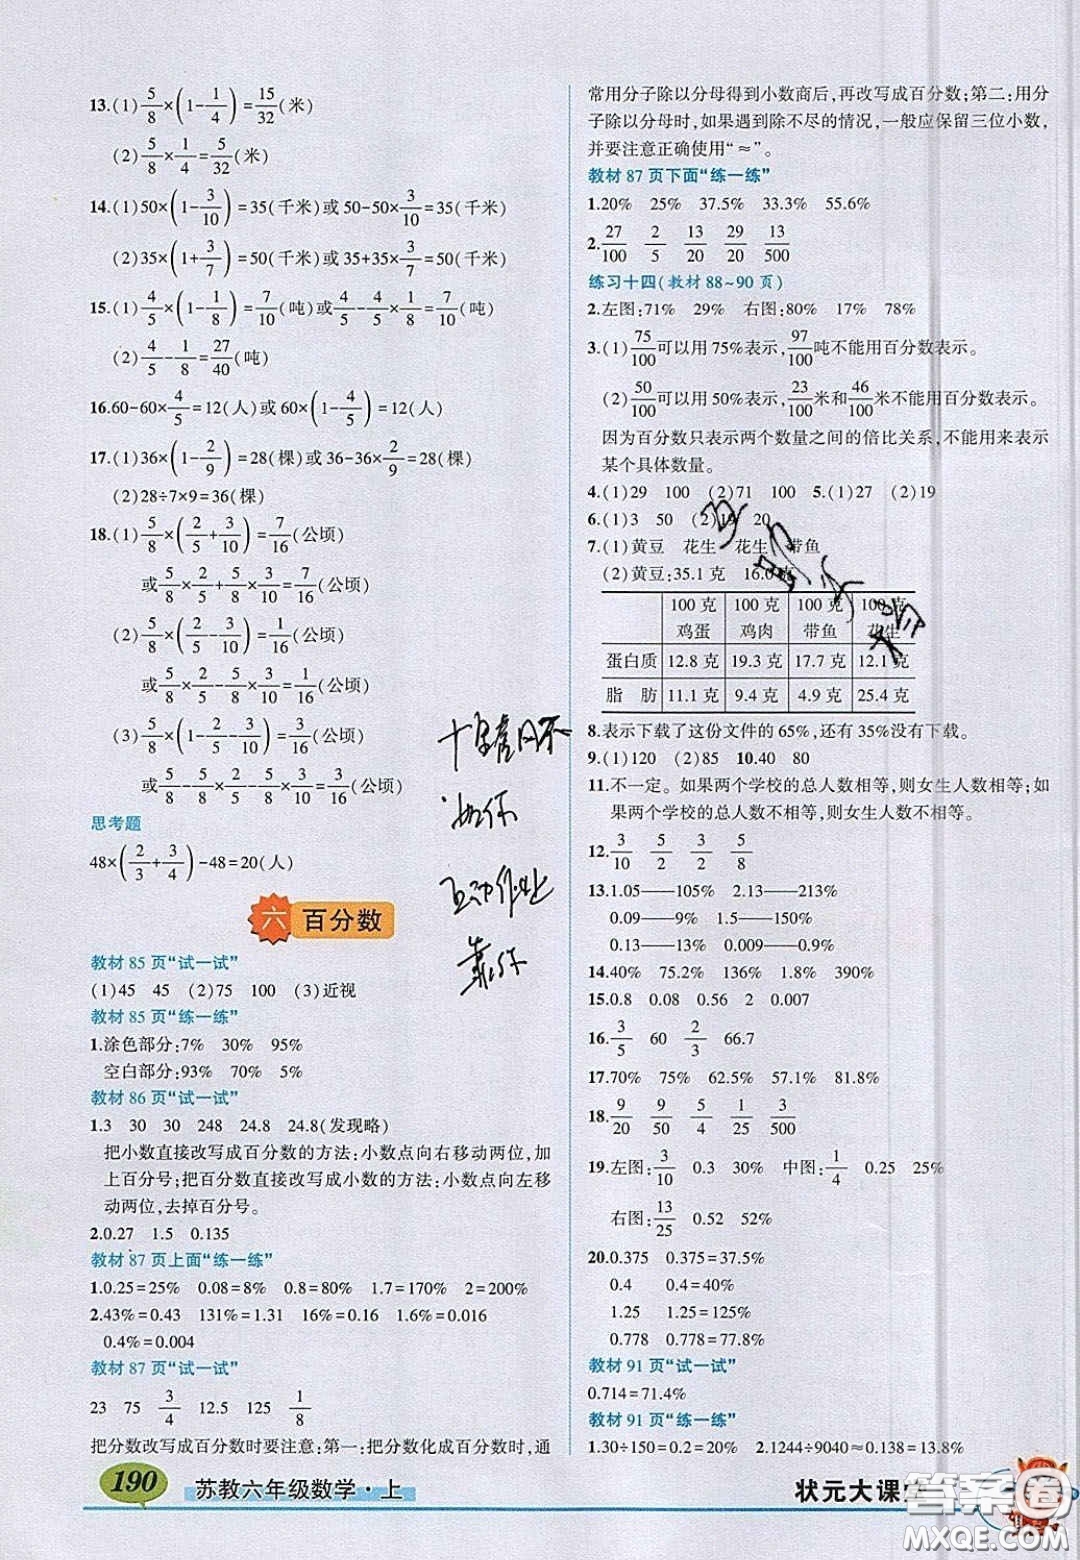 13.(1)5/8×(1-1/4)=15/32(米)
(2)5/8×1/4=5/32(米)
14.(1)50×(1-3/10)=35(千米)或50-50×3/10=35(千米)
(2)35×(1+3/7)=50(千米)或35+35×3/7=50(千米)
15.(1)4/5×(1-1/8)=7/10(吨)或4/5-4/5×1/8=7/10(吨)
(2)4/5-1/8=27/40(吨)
16.60-60×4/5=12(人)或60×(1-4/5)=12(人)
17.(1)36×(1-2/9)=28(棵)或36-36×2/9=28(棵)
(2)28÷7×9=36(棵)
18.(1)5/8×(2/5+3/10)=7/16(公顷)
或5/8×2/5+5/8×3/10=7/16(公顷)
(2)5/8×(2/5-3/10)=1/16(公顷)
或5/8×2/5-5/8×3/10=1/16(公顷)
(3)5/8×(1-2/5-3/10)=3/16(公顷)
或5/8-5/8×2/5-5/8×3/10=3/16(公顷)
思考题
48×(2/3+3/4)-48=20(人)
六 百分数
教材85页“试一试”
(1)45 45 (2)75 100 (3)近视
教材85页“练一练”
1.涂色部分:7% 30% 95%
空白部分:93% 70% 5%
教材86页“试一试”
1.3 30 30 248 24.8 24.8(发现略)
把小数直接改写成百分数的方法:小数点向右移动两位,加
上百分号;把百分数直接改写成小数的方法:小数点向左移
动两位,去掉百分号。
2.0.27 1.5 0.135
教材87页上面“练一练”
1.0.25=25% 0.08=8% 0.8=80% 1.7=170% 2=200%
2.43%=0.43 131%=1.31 16%=0.16 1.6%=0.016
0.4%=0.004
教材87页“试一试”
23 75 3/4 12.5 125 1/8
把分数改写成百分数时要注意:第一:把分数化成百分数时,通
常用分子除以分母得到小数商后,再改写成百分数;第二:用分
子除以分母时,如果遇到除不尽的情况,一般应保留三位小数,
并要注意正确使用“≈”。
教材87页下面“练一练”
1.20% 25% 37.5% 33.3% 55.6%
2.27/100 2/5 13/20 29/20 13/500
练习十四(教材88~90页)
2.左图:71% 29% 右图:80% 17% 78%
3.(1)75/100可以用75%表示,97/100吨不能用百分数表示。
(2)50/100可以用50%表示,23/100米和46/100米不能用百分数表示。
因为百分数只表示两个数量之间的倍比关系,不能用来表示
某个具体数量。
4.(1)29 100 (2)71 100 5.(1)27 (2)19
6.(1)3 50 (2)19 20
7.(1)黄豆 花生 花生 带鱼
(2)黄豆:35.1克 16.0克
100克 100克 100克 100克
鸡蛋 鸡肉 带鱼 花生
蛋白质 12.8克 19.3克 17.7克 12.1克
脂 肪 11.1克 9.4克 4.9克 25.4克
8.表示下载了这份文件的65%,还有35%没有下载。
9.(1)120 (2)85 10.40 80
11.不一定。如果两个学校的总人数相等,则女生人数相等;如
果两个学校的总人数不相等,则女生人数不相等。
12.3/10 5/2 3/2 5/8
13.1.05——105% 2.13——213%
0.09——9% 1.5——150%
0.13——13% 0.009——0.9%
14.40% 75.2% 136% 1.8% 390%
15.0.8 0.08 0.56 2 0.007
16.3/5 60 2/3 66.7
17.70% 75% 62.5% 57.1% 81.8%
18.9/20 91/50 5/4 1/40 3/500
19.左图:3/10 0.3 30% 中图:1/4 0.25 25%
右图:13/25 0.52 52%
20.0.375 0.375=37.5%
0.4 0.4=40%
1.25 1.25=125%
0.778 0.778=77.8%
教材91页“试一试”
0.714=71.4%
教材91页“练一练”
1.30÷150=0.2=20% 2.1244÷9040≈0.138=13.8%
十字虐日不
互动作业
靠你
190 苏教六年级数学·上
状元大课
答案圈
MXQE.COM